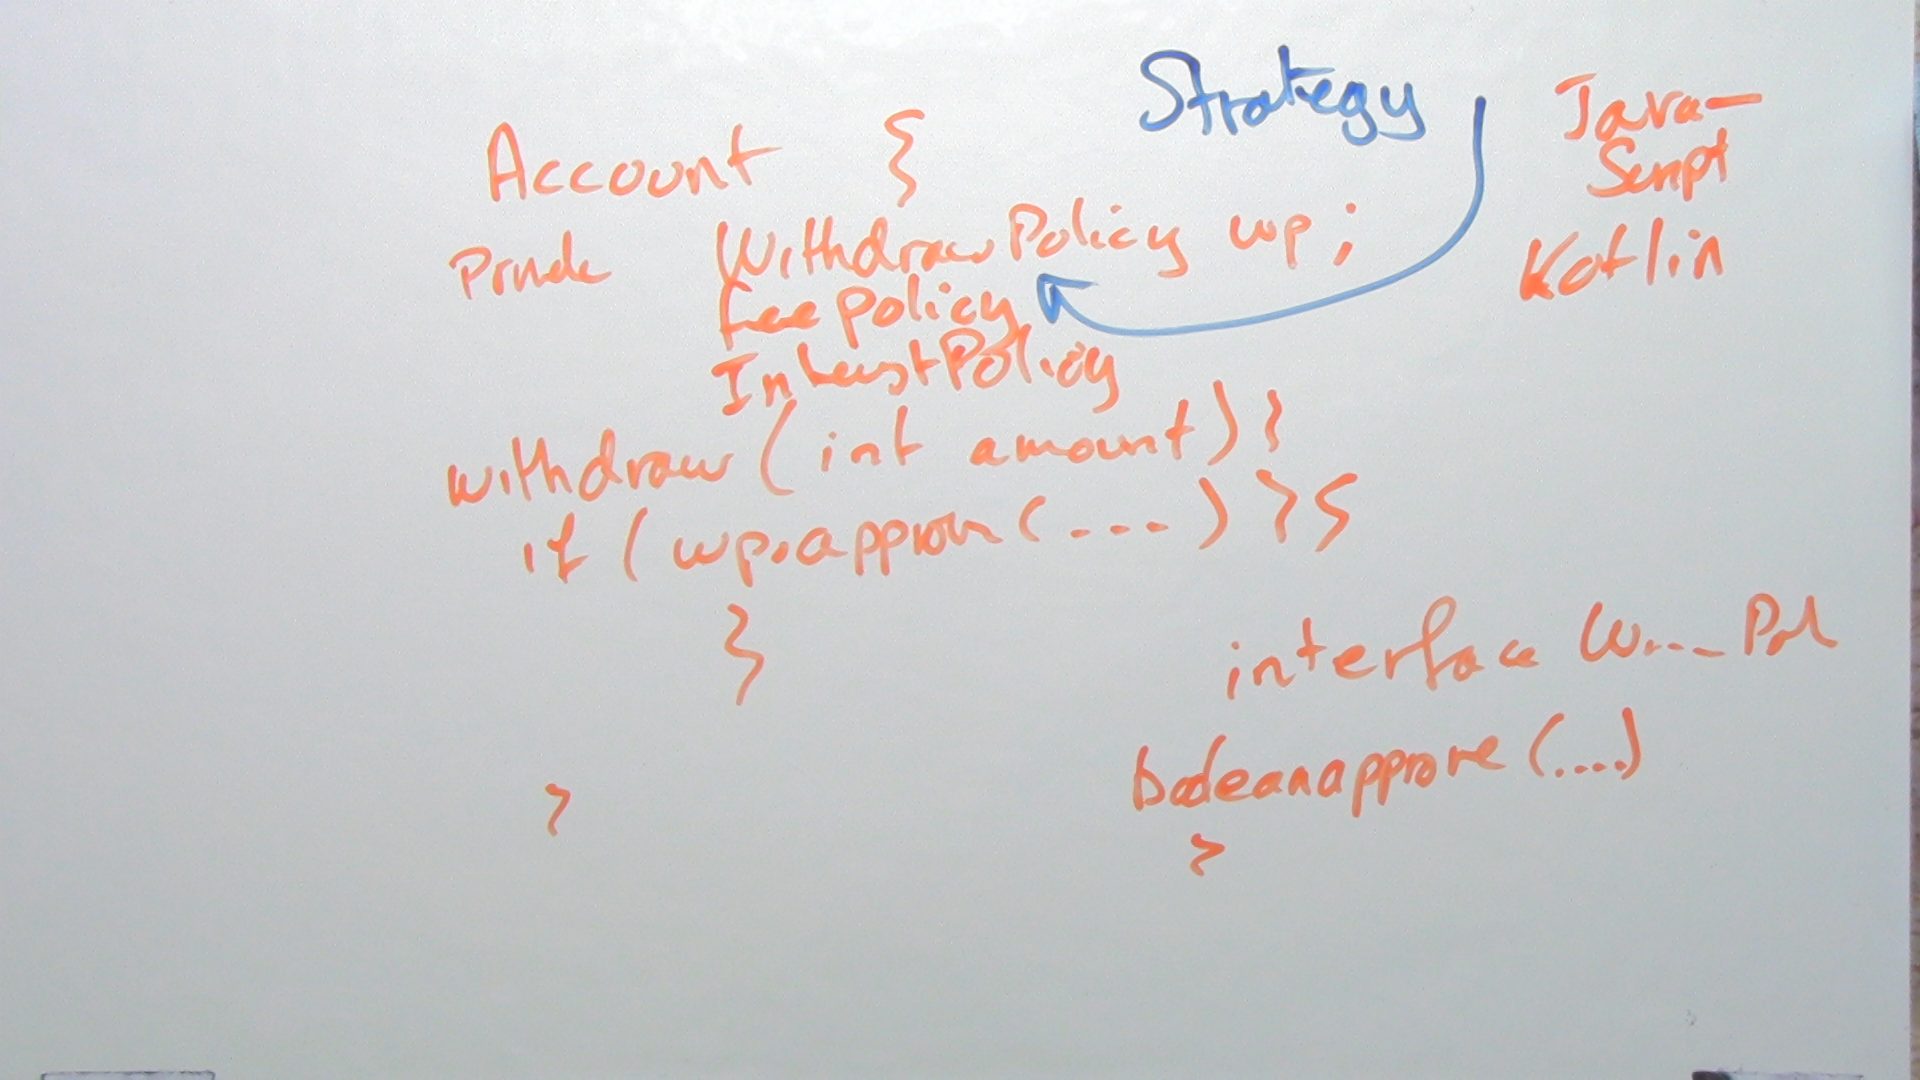 Strategy
Java-
Script
Kotlin
Account {
WithdrawPolicy wp;
feePolicy
InterestPolicy
withdraw (int amount) {
if (wp.approve (....) ) {
}
}
interface W... Pol
boolean approve (....)
}